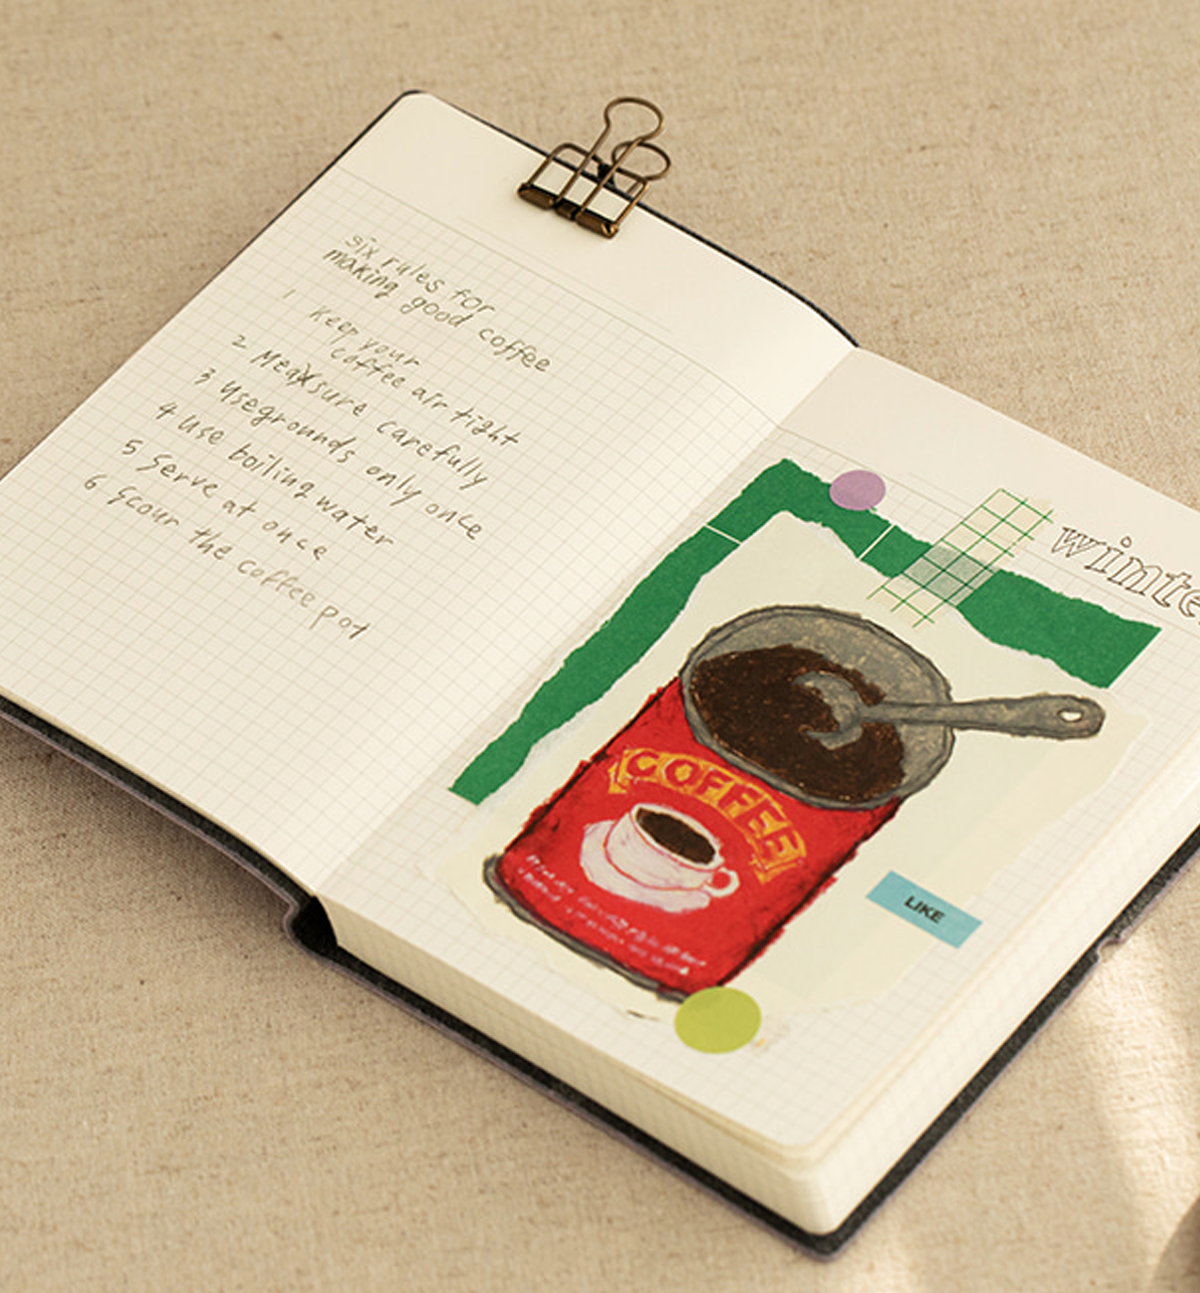 six rules for
making good coffee
1 Keep your
coffee air tight
2 Measure carefully
3 Use grounds only once
4 Use boiling water
5 Serve at once
6 Scour the coffee pot
winte
COFFEE
LIKE